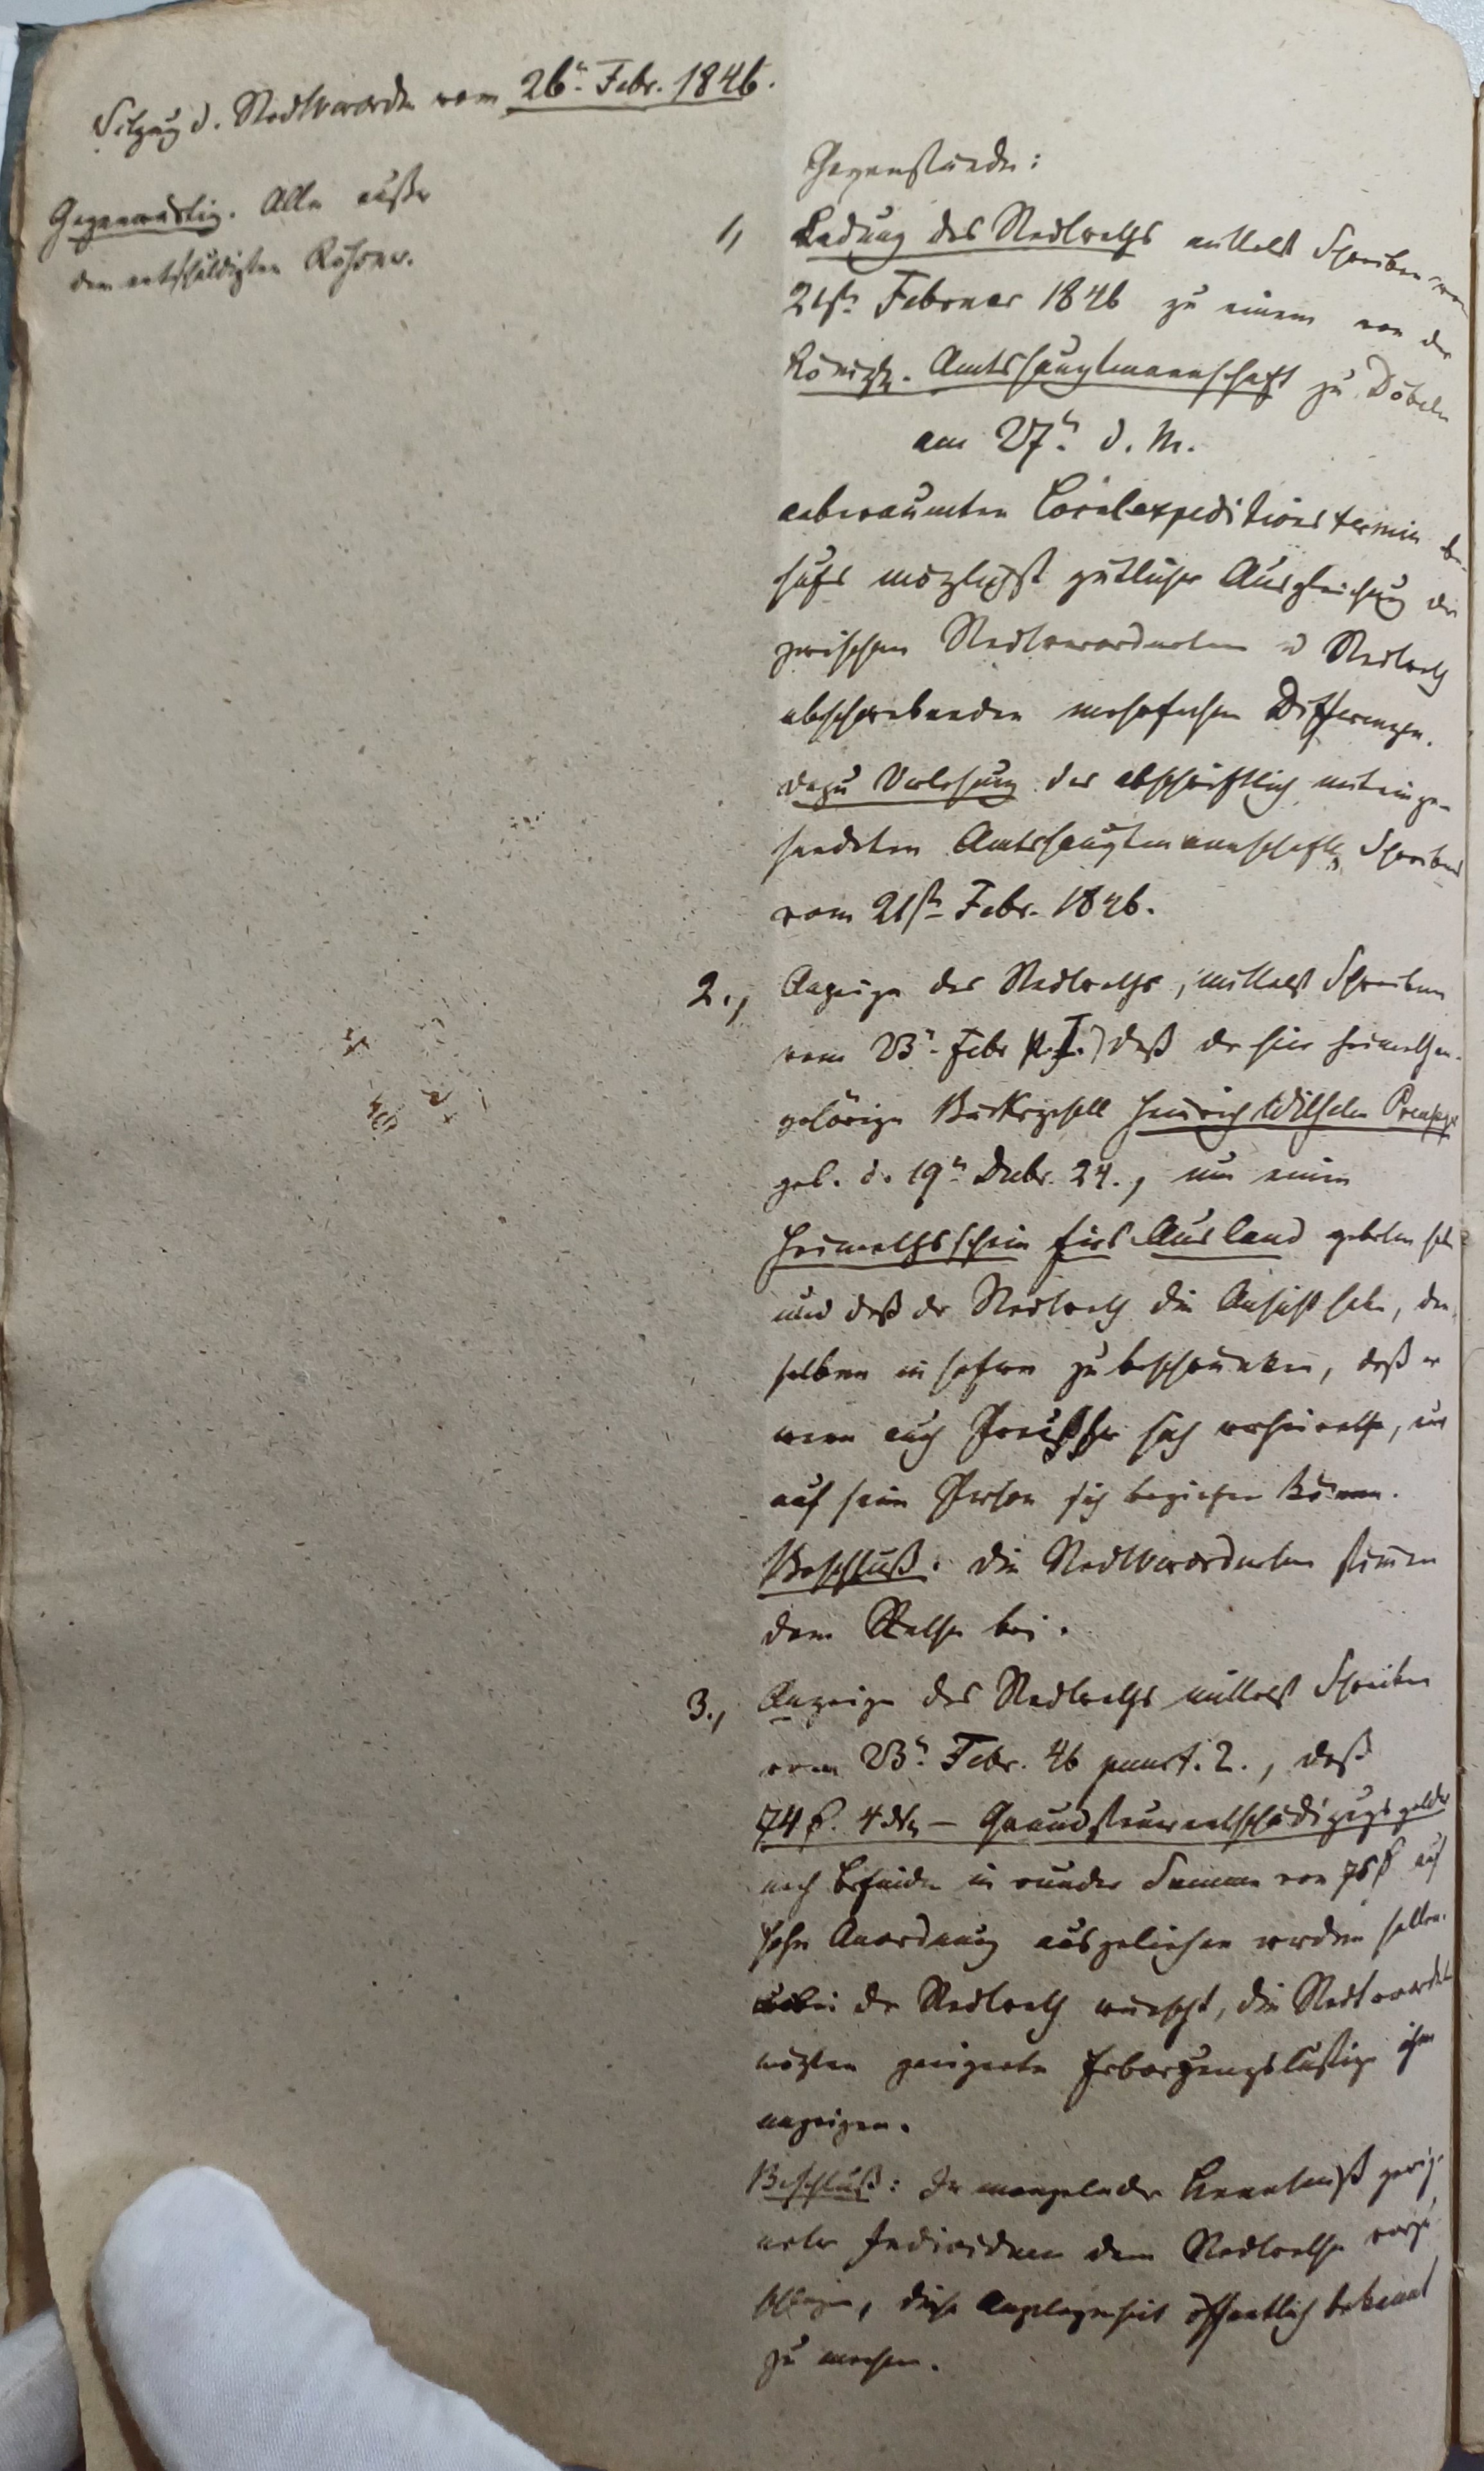 Sitzung d. Stadtverordn vom 26n. Febr. 1846.
Gegenwärtig. Alle außer
dem entschuldigten
Gegenstände:
1, Ladung des Stadtraths mittelst Schreiben vom
21stn Februar 1846 zu einem von der
Königl. Amtshauptmannschaft zu Döbeln
am 27n. d. M.
anberaumten Localexpeditionstermin be-
hufs möglichst gütlicher Ausgleichung der
zwischen Stadtverordneten u Stadtrath
obschwebenden mehrfachen Differenzen.
dazu Vorlesung des abschriftlich miteinge-
sendeten Amtshauptmannschaftl. Schreibens
vom 21stn Febr. 1846.
2., Anzeige des Stadtraths, mittelst Schreiben
vom 23n. Febr daß der hier heimathan-
gehörige Bäckergesell Heinrich Wilhelm
geb. d. 19n Decbr. 24., um einen
Heimathsschein fürs Ausland gebeten habe
und daß der Stadtrath die Ansicht habe, den-
selben in sofern zu beschränken, daß er
wenn auch sich verheirathe, nur
auf seine Person sich beziehen könne.
Beschluß: die Stadtverordneten stimmen
dem Rathe bei.
3., Anzeige des Stadtraths mittelst Schreiben
vom 23n. Febr. 46 punct. 2., daß
74 4 – Grundsteuerentschädigungsgelder
nach Befinden in runder Summe von 75 auf
hohe Anordnung ausgeliehen werden sollen.
wobei der Stadtrath wünscht, die Stadtverordn
möchten geeignete Erborgungslustige ihm
anzeigen.
Beschluß: In mangelnder Kenntniß geeig-
neter Individuen dem Stadtrathe vorzu
schlagen, diese Angelegenheit öffentlich bekannt
zu machen.